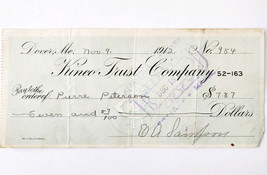 Dover, Me. Nov. 9. 1912 No. 984
Kineo Trust Company 52-163
Pay to the
order of Pierre Peterson $7 87
Seven and 87/100 Dollars